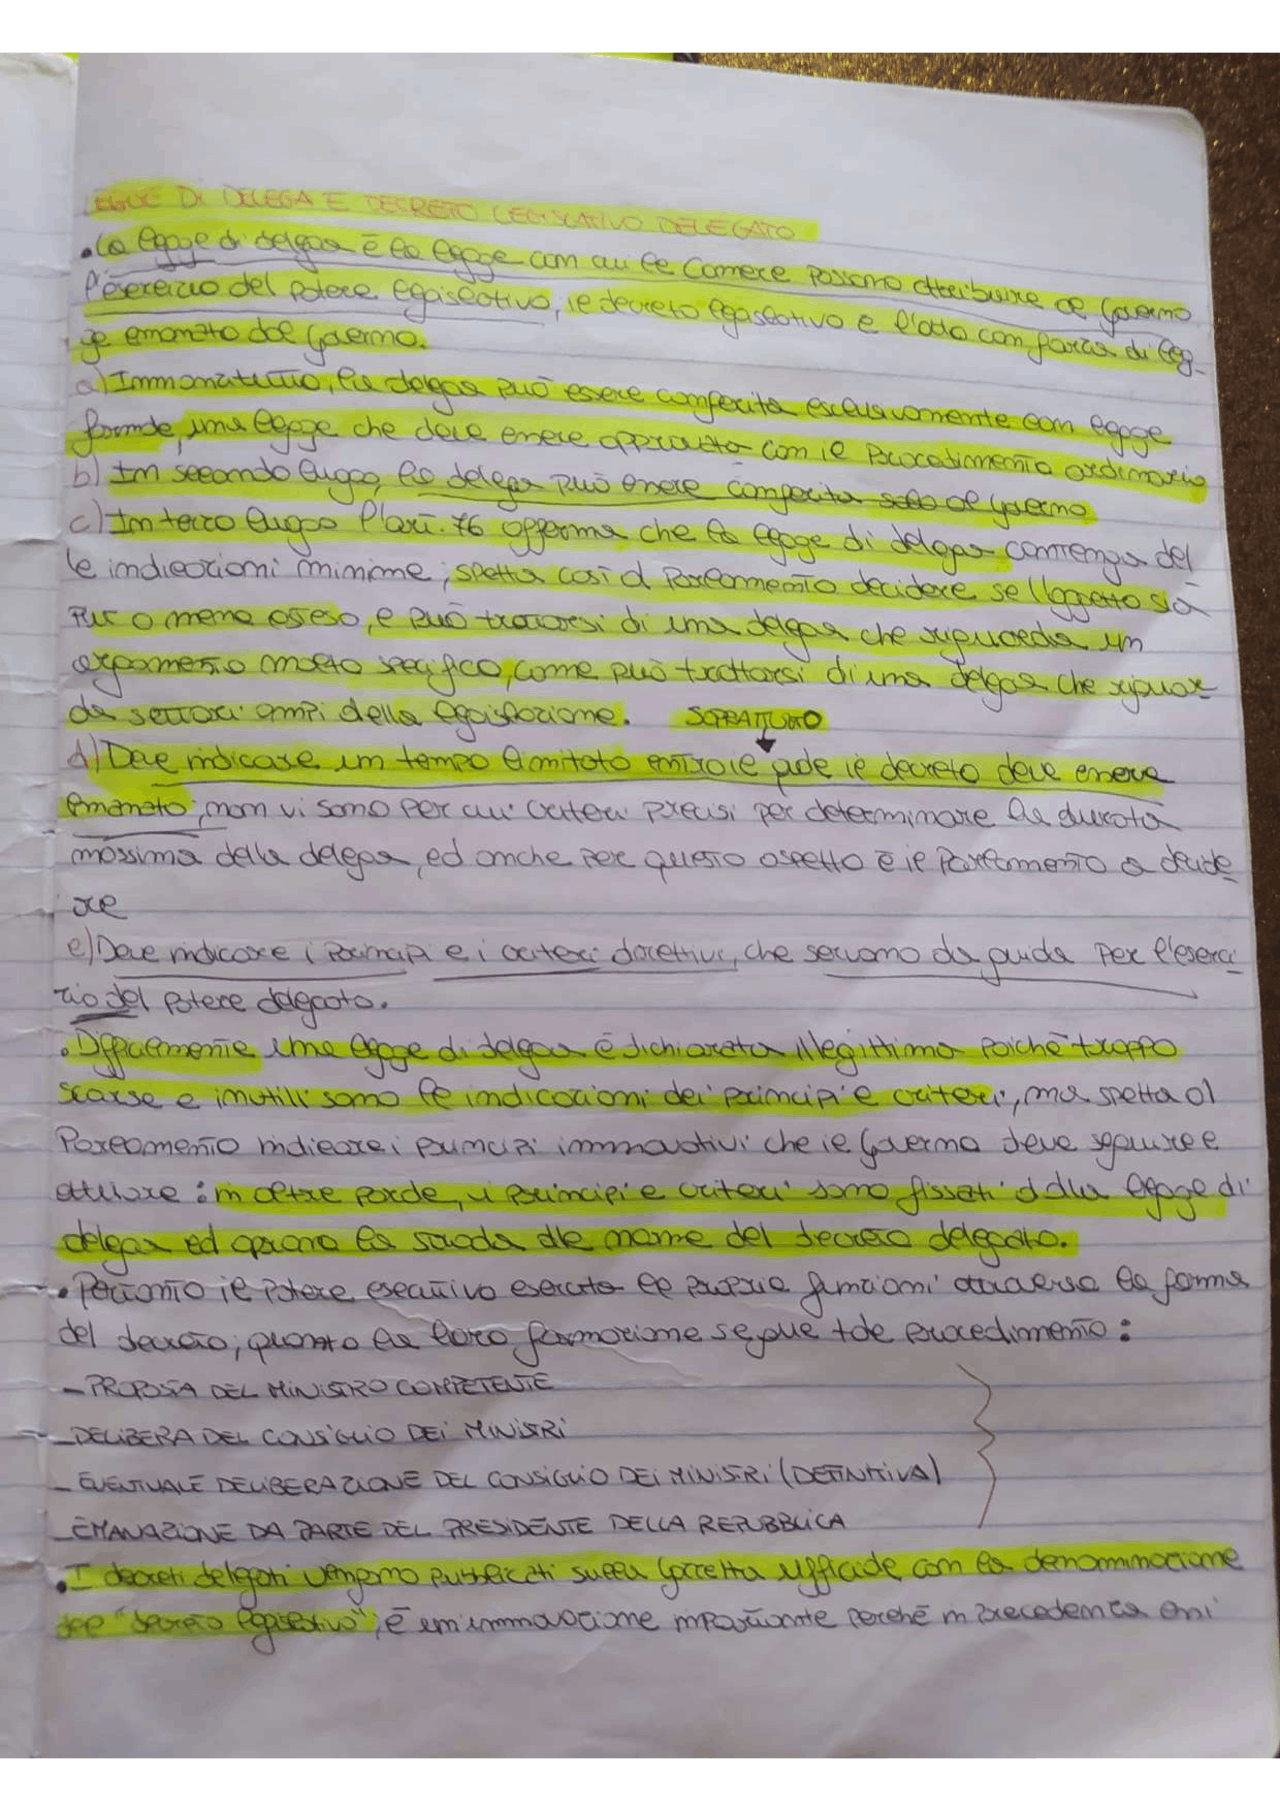 LEGGE DI DELEGA E DECRETO LEGISLATIVO DELEGATO
•La legge di delega è la legge con cui le Camere possono attribuire al Governo
l'esercizio del potere legislativo, il decreto legislativo è l'atto con forza di leg-
ge emanato dal Governo.
a) Innanzitutto, la delega può essere conferita esclusivamente con legge
formale, una legge che deve essere approvata con il procedimento ordinario
b) In secondo luogo, la delega può essere conferita solo al Governo
c) In terzo luogo l'art. 76 afferma che la legge di delega contenga del
le indicazioni minime; spetta così al Parlamento decidere se l'oggetto sia
più o meno esteso, e può trattarsi di una delega che riguarda un
argomento molto specifico, come può trattarsi di una delega che riguar
da settori ampi della legislazione. SOPRATTUTTO
d) Deve indicare un tempo limitato entro il quale il decreto deve essere
emanato; non vi sono per cui criteri precisi per determinare la durata
massima della delega, ed anche per questo aspetto è il Parlamento a decide
re
e) Deve indicare i principi e i criteri direttivi, che servono da guida per l'eserci
zio del potere delegato.
•Difficilmente una legge di delega è dichiarata illegittima poiché troppo
scarse e inutili sono le indicazioni dei principi e criteri, ma spetta al
Parlamento indicare i principi innovativi che il Governo deve seguire e
attuare: in altre parole, i principi e criteri sono fissati dalla legge di
delega ed aprono la strada alle norme del decreto delegato.
•Pertanto il potere esecutivo esercita le proprie funzioni attraverso la forma
del decreto; quanto la loro formazione segue tale procedimento:
- PROPOSTA DEL MINISTRO COMPETENTE
- DELIBERA DEL CONSIGLIO DEI MINISTRI
- EVENTUALE DELIBERAZIONE DEL CONSIGLIO DEI MINISTRI (DEFINITIVA)
- EMANAZIONE DA PARTE DEL PRESIDENTE DELLA REPUBBLICA
•I decreti delegati vengono pubblicati sulla Gazzetta ufficiale con la denominazione
"decreto legislativo"; è un'innovazione importante perché in precedenza